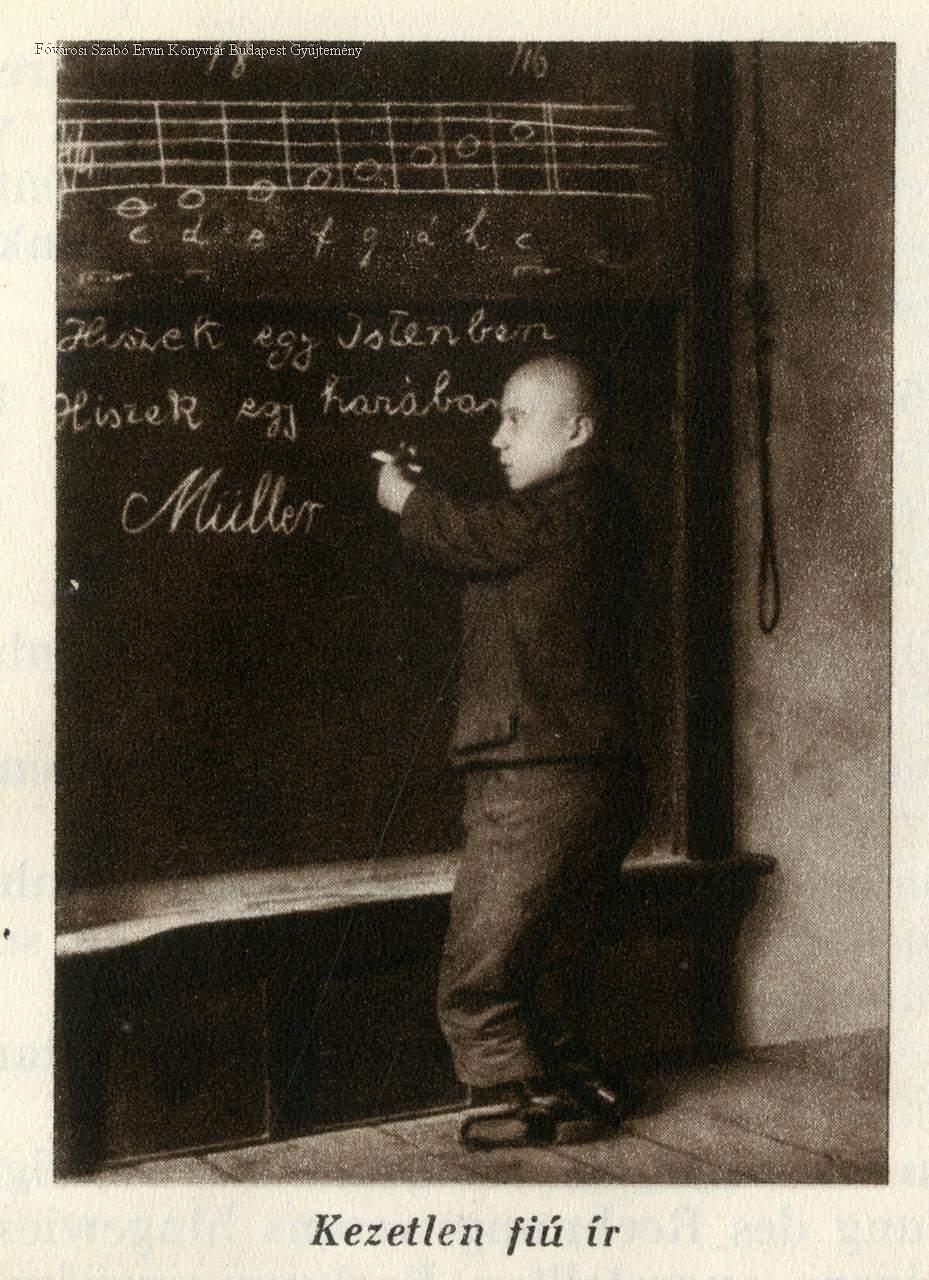 Fővárosi Szabó Ervin Könyvtár Budapest Gyűjtemény
c d e f g á h c
Hiszek egy Istenben
Hiszek egy hazában
Müller
Kezetlen fiú ír